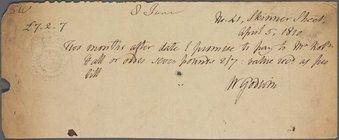 8 June
No. 41, Skinner Street,
£7.2.7
April 5, 1810
Two months after date I promise to pay to Mr Robt
Hall or order seven pounds 2/7: value recd as per
bill
W Godwin